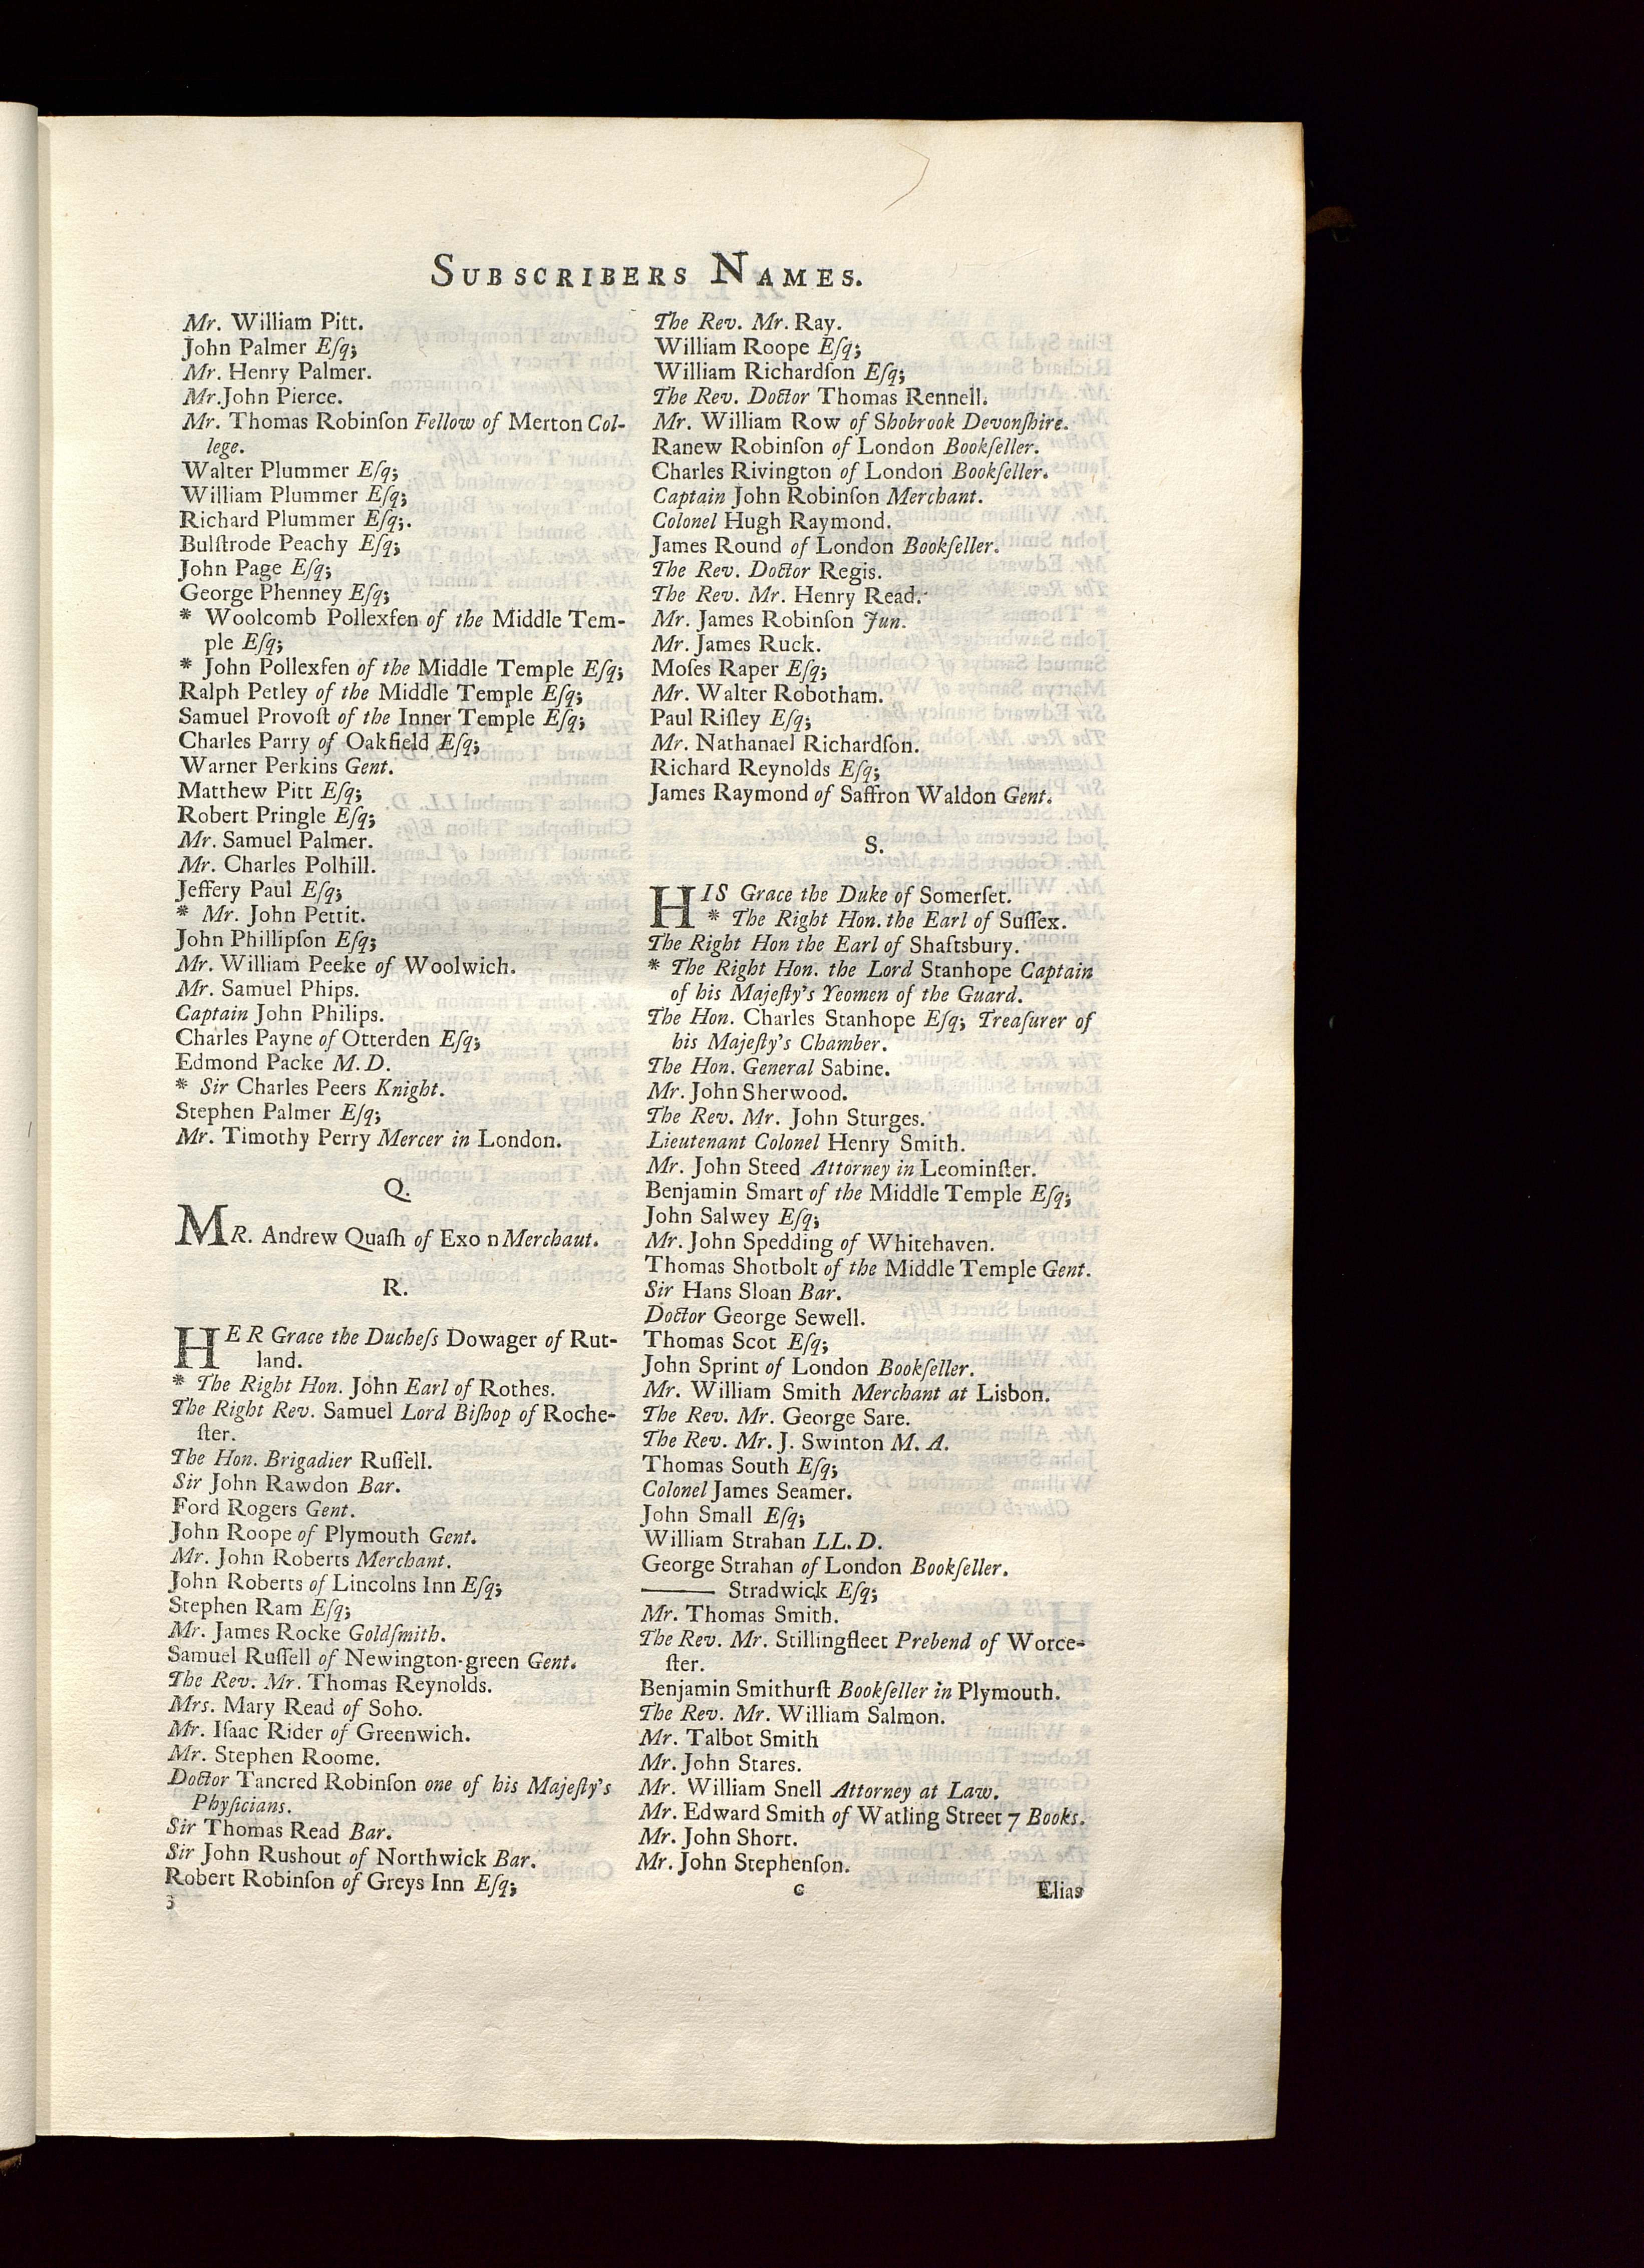 SUBSCRIBERS NAMES.
Mr. William Pitt.
John Palmer Eſq;
Mr. Henry Palmer.
Mr. John Pierce.
Mr. Thomas Robinſon Fellow of Merton Col-
lege.
Walter Plummer Eſq;
William Plummer Eſq;
Richard Plummer Eſq;.
Bulſtrode Peachy Eſq;
John Page Eſq;
George Phenney Eſq;
* Woolcomb Pollexfen of the Middle Tem-
ple Eſq;
* John Pollexfen of the Middle Temple Eſq;
Ralph Petley of the Middle Temple Eſq;
Samuel Provoſt of the Inner Temple Eſq;
Charles Parry of Oakfield Eſq;
Warner Perkins Gent.
Matthew Pitt Eſq;
Robert Pringle Eſq;
Mr. Samuel Palmer.
Mr. Charles Polhill.
Jeffery Paul Eſq;
* Mr. John Pettit.
John Phillipſon Eſq;
Mr. William Peeke of Woolwich.
Mr. Samuel Phips.
Captain John Philips.
Charles Payne of Otterden Eſq;
Edmond Packe M. D.
* Sir Charles Peers Knight.
Stephen Palmer Eſq;
Mr. Timothy Perry Mercer in London.
Q.
MR. Andrew Quaſh of Exo n Merchaut.
R.
HER Grace the Ducheſs Dowager of Rut-
land.
* The Right Hon. John Earl of Rothes.
The Right Rev. Samuel Lord Biſhop of Roche-
ſter.
The Hon. Brigadier Ruſſell.
Sir John Rawdon Bar.
Ford Rogers Gent.
John Roope of Plymouth Gent.
Mr. John Roberts Merchant.
John Roberts of Lincolns Inn Eſq;
Stephen Ram Eſq;
Mr. James Rocke Goldſmith.
Samuel Ruſſell of Newington-green Gent.
The Rev. Mr. Thomas Reynolds.
Mrs. Mary Read of Soho.
Mr. Iſaac Rider of Greenwich.
Mr. Stephen Roome.
Doctor Tancred Robinſon one of his Majeſty's
Phyſicians.
Sir Thomas Read Bar.
Sir John Rushout of Northwick Bar.
Robert Robinſon of Greys Inn Eſq;
3
The Rev. Mr. Ray.
William Roope Eſq;
William Richardſon Eſq;
The Rev. Doctor Thomas Rennell.
Mr. William Row of Shobrook Devonſhire.
Ranew Robinſon of London Bookſeller.
Charles Rivington of London Bookſeller.
Captain John Robinſon Merchant.
Colonel Hugh Raymond.
James Round of London Bookſeller.
The Rev. Doctor Regis.
The Rev. Mr. Henry Read.
Mr. James Robinſon Jun.
Mr. James Ruck.
Moſes Raper Eſq;
Mr. Walter Robotham.
Paul Riſley Eſq;
Mr. Nathanael Richardſon.
Richard Reynolds Eſq;
James Raymond of Saffron Waldon Gent.
S.
HIS Grace the Duke of Somerſet.
* The Right Hon. the Earl of Suſſex.
The Right Hon the Earl of Shaftsbury.
* The Right Hon. the Lord Stanhope Captain
of his Majeſty's Yeomen of the Guard.
The Hon. Charles Stanhope Eſq; Treaſurer of
his Majeſty's Chamber.
The Hon. General Sabine.
Mr. John Sherwood.
The Rev. Mr. John Sturges.
Lieutenant Colonel Henry Smith.
Mr. John Steed Attorney in Leominſter.
Benjamin Smart of the Middle Temple Eſq;
John Salwey Eſq;
Mr. John Spedding of Whitehaven.
Thomas Shotbolt of the Middle Temple Gent.
Sir Hans Sloan Bar.
Doctor George Sewell.
Thomas Scot Eſq;
John Sprint of London Bookſeller.
Mr. William Smith Merchant at Lisbon.
The Rev. Mr. George Sare.
The Rev. Mr. J. Swinton M. A.
Thomas South Eſq;
Colonel James Seamer.
John Small Eſq;
William Strahan LL. D.
George Strahan of London Bookſeller.
——— Stradwick Eſq;
Mr. Thomas Smith.
The Rev. Mr. Stillingfleet Prebend of Worce-
ſter.
Benjamin Smithurſt Bookſeller in Plymouth.
The Rev. Mr. William Salmon.
Mr. Talbot Smith
Mr. John Stares.
Mr. William Snell Attorney at Law.
Mr. Edward Smith of Watling Street 7 Books.
Mr. John Short.
Mr. John Stephenſon.
c
Elias